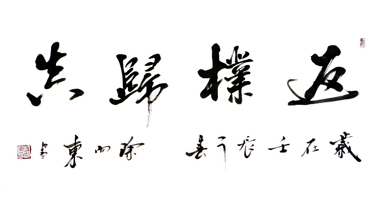 返樸歸真
歲在壬辰年春 徐東書